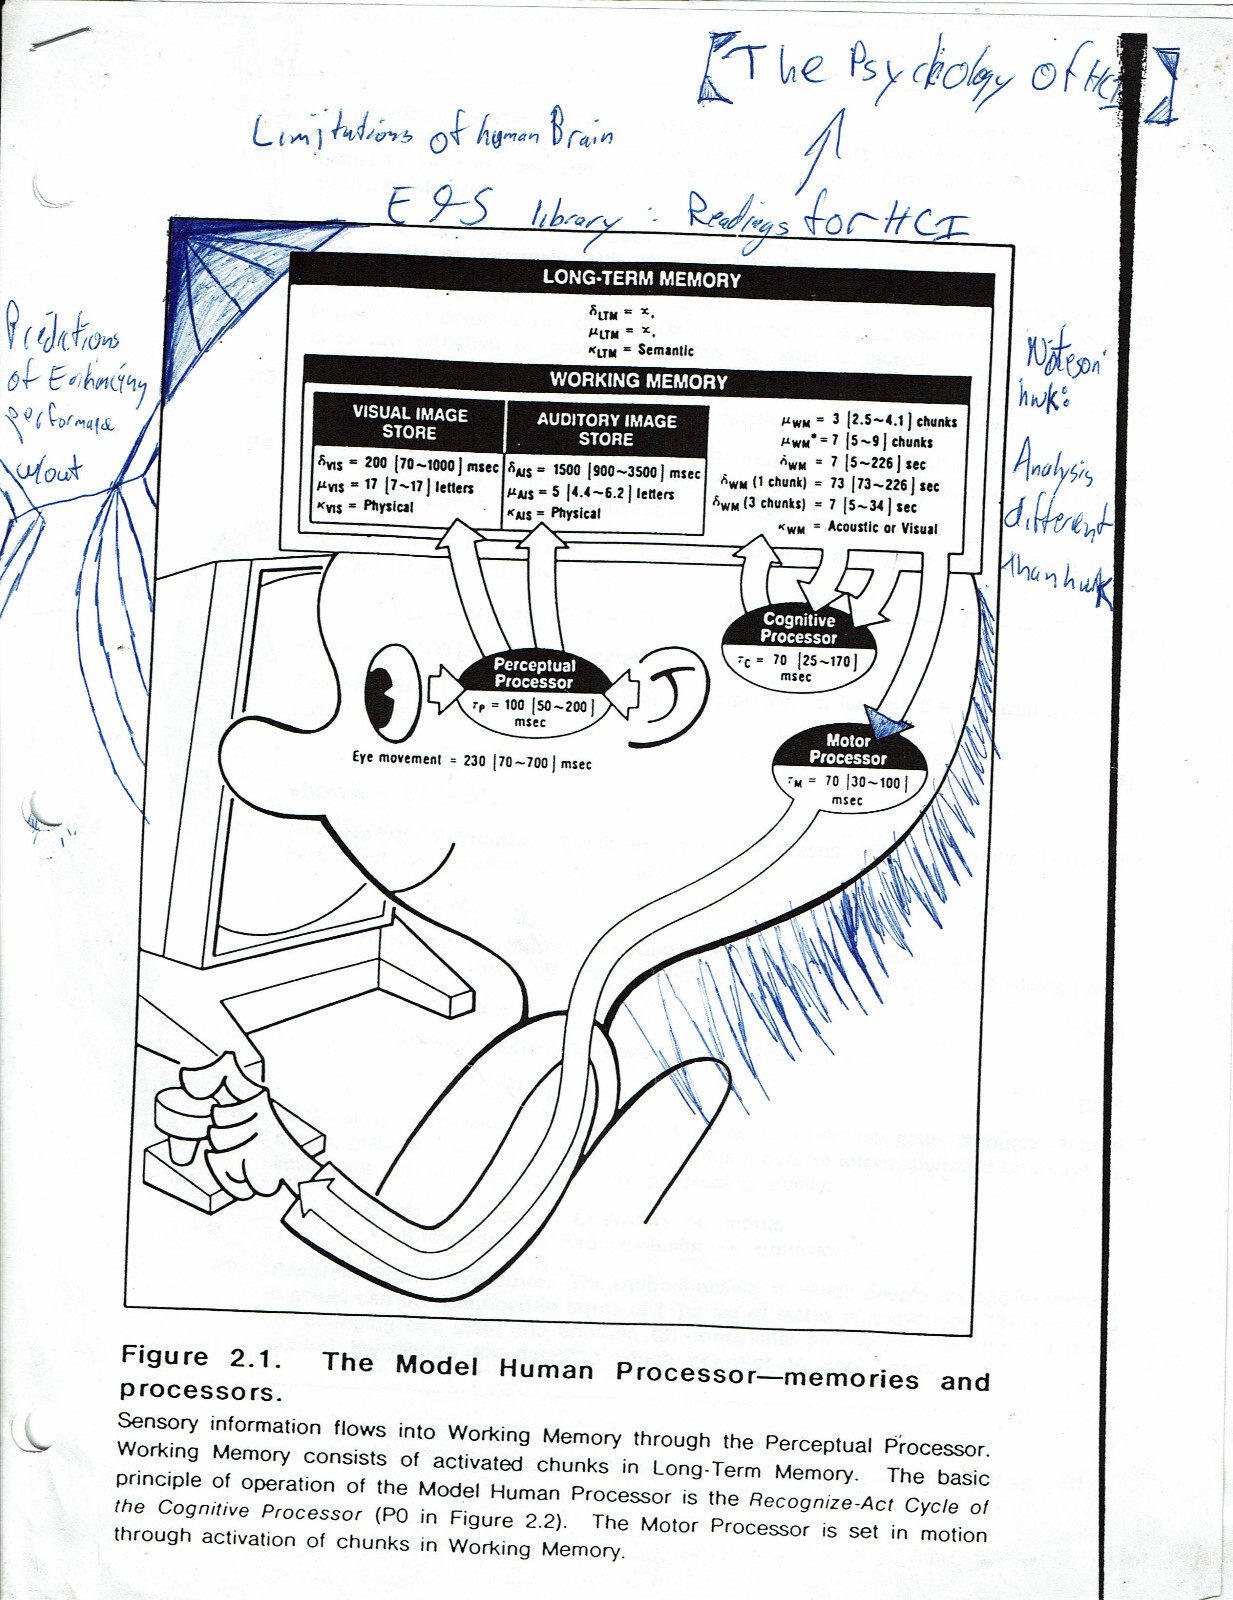 The Psychology of HCI
Limitations of human Brain
E&S library: Readings for HCI
LONG-TERM MEMORY
δLTM = ∝,
μLTM = ∝,
κLTM = Semantic
WORKING MEMORY
VISUAL IMAGE
STORE
δVIS = 200 [70~1000] msec
μVIS = 17 [7~17] letters
κVIS = Physical
AUDITORY IMAGE
STORE
δAIS = 1500 [900~3500] msec
μAIS = 5 [4.4~6.2] letters
κAIS = Physical
μWM = 3 [2.5~4.1] chunks
μWM* = 7 [5~9] chunks
δWM = 7 [5~226] sec
δWM (1 chunk) = 73 [73~226] sec
δWM (3 chunks) = 7 [5~34] sec
κWM = Acoustic or Visual
Predictions
of Enhancing
performance
w/out
Notes on
hwk:
Analysis
different
than hwk
Cognitive
Processor
τC = 70 [25~170]
msec
Perceptual
Processor
τP = 100 [50~200]
msec
Eye movement = 230 [70~700] msec
Motor
Processor
τM = 70 [30~100]
msec
Figure 2.1. The Model Human Processor—memories and
processors.
Sensory information flows into Working Memory through the Perceptual Processor.
Working Memory consists of activated chunks in Long-Term Memory. The basic
principle of operation of the Model Human Processor is the Recognize-Act Cycle of
the Cognitive Processor (P0 in Figure 2.2). The Motor Processor is set in motion
through activation of chunks in Working Memory.